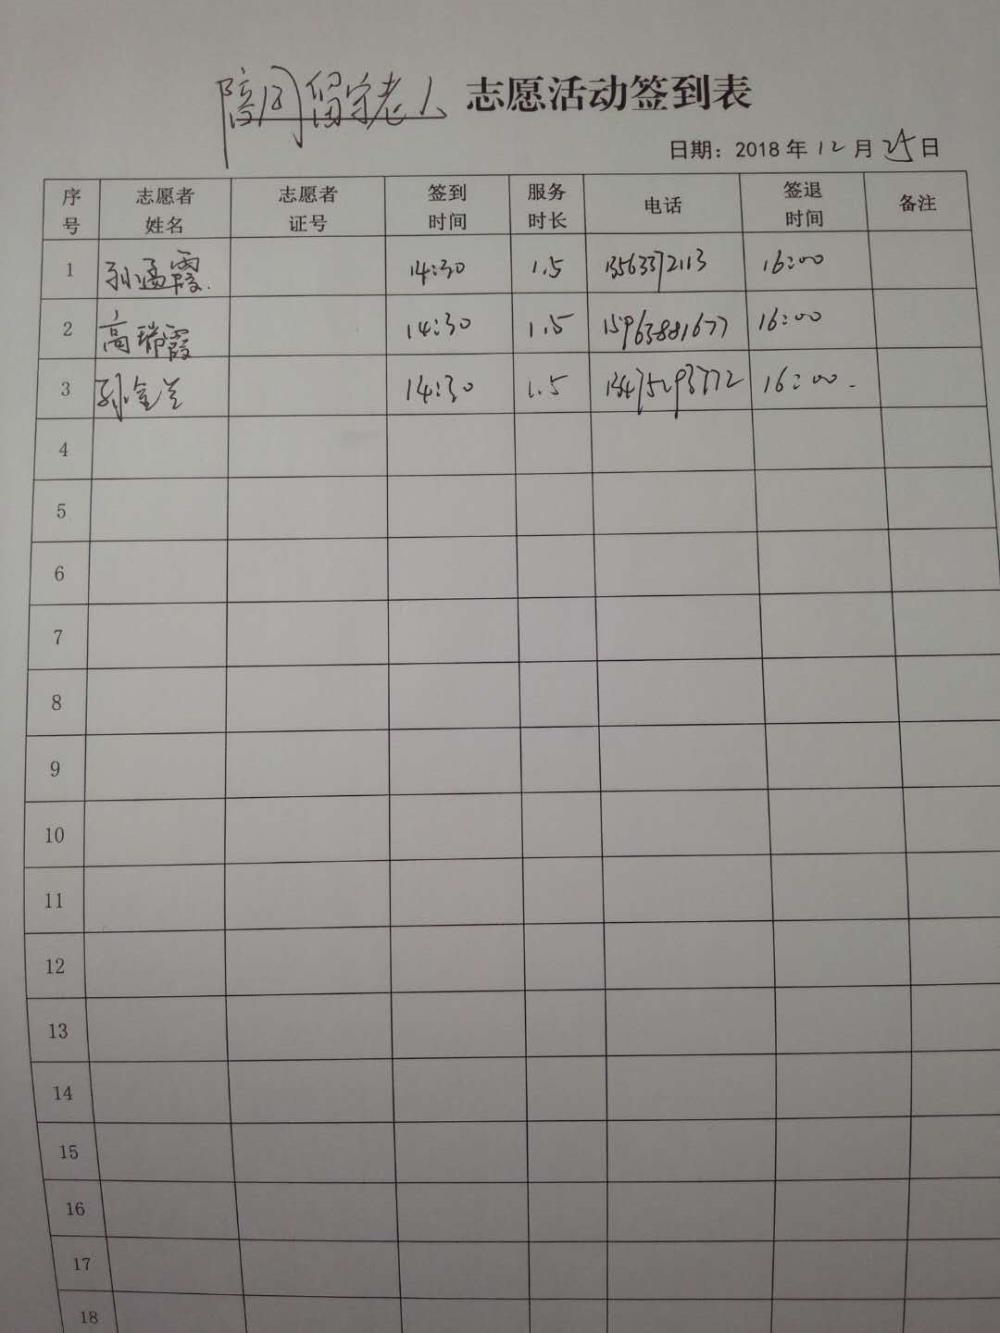 陪同留守老人 志愿活动签到表
日期：2018年12月25日
序号 志愿者姓名 志愿者证号 签到时间 服务时长 电话 签退时间 备注
1 孙孟霞 14:30 1.5 13563372113 16:00
2 高瑞霞 14:30 1.5 15963881677 16:00
3 孙金兰 14:30 1.5 13475293772 16:00
4
5
6
7
8
9
10
11
12
13
14
15
16
17
18